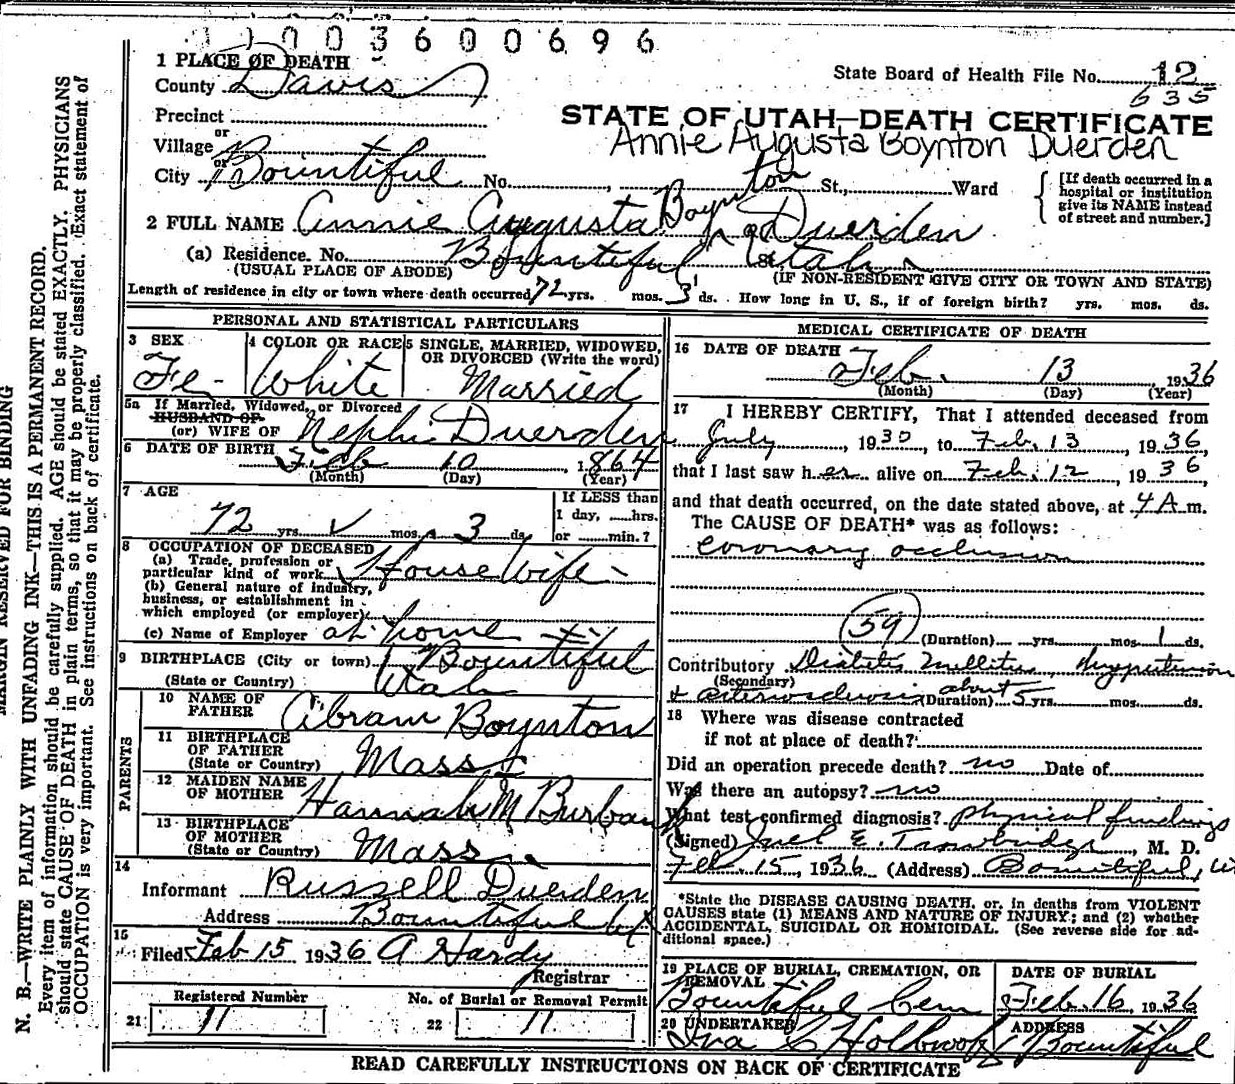 003600696
1 PLACE OF DEATH
County Davis
State Board of Health File No. 12
635
Precinct
or
Village
or
City Bountiful No. , St., Ward
STATE OF UTAH—DEATH CERTIFICATE
Annie Augusta Boynton Duerden
[If death occurred in a
hospital or institution
give its NAME instead
of street and number.]
2 FULL NAME Annie Augusta Boynton Duerden
(a) Residence. No. Bountiful St. Utah
(USUAL PLACE OF ABODE) (IF NON-RESIDENT GIVE CITY OR TOWN AND STATE)
Length of residence in city or town where death occurred 72 yrs. mos. 3 ds. How long in U. S., if of foreign birth? yrs. mos. ds.
PERSONAL AND STATISTICAL PARTICULARS
3 SEX
Fe-
4 COLOR OR RACE
White
5 SINGLE, MARRIED, WIDOWED,
OR DIVORCED (Write the word)
Married
5a If Married, Widowed, or Divorced
HUSBAND OF
(or) WIFE OF Nephi Duerden
6 DATE OF BIRTH Feb 10, 1864
(Month) (Day) (Year)
7 AGE
72 yrs. mos. 3 ds.
If LESS than
1 day, hrs.
or min.?
8 OCCUPATION OF DECEASED
(a) Trade, profession or
particular kind of work House Wife -
(b) General nature of industry,
business, or establishment in
which employed (or employer)
(c) Name of Employer at home
9 BIRTHPLACE (City or town) Bountiful
(State or Country) Utah
PARENTS
10 NAME OF
FATHER Abram Boynton
11 BIRTHPLACE
OF FATHER
(State or Country) Mass
12 MAIDEN NAME
OF MOTHER Hannah M Burbank
13 BIRTHPLACE
OF MOTHER
(State or Country) Mass
14
Informant Russell Duerden
Address Bountiful Ut
15
Filed Feb 15 1936 A Hardy
Registrar
Registered Number
21 11
No. of Burial or Removal Permit
22 11
MEDICAL CERTIFICATE OF DEATH
16 DATE OF DEATH
Feb. 13, 1936
(Month) (Day) (Year)
17 I HEREBY CERTIFY, That I attended deceased from
July, 1930, to Feb. 13, 1936,
that I last saw her alive on Feb. 12, 1936,
and that death occurred, on the date stated above, at 4 A m.
The CAUSE OF DEATH* was as follows:
coronary occlusion
59
(Duration) yrs. mos. 1 ds.
Contributory Diabetes mellitus, hypertension
(Secondary)
+ arteriosclerosis (Duration) about 5 yrs. mos. ds.
18 Where was disease contracted
if not at place of death?
Did an operation precede death? no Date of
Was there an autopsy? no
What test confirmed diagnosis? physical findings
(Signed) E. Trowbridge, M. D.
Feb. 15, 1936 (Address) Bountiful, Ut
*State the DISEASE CAUSING DEATH, or, in deaths from VIOLENT
CAUSES state (1) MEANS AND NATURE OF INJURY; and (2) whether
ACCIDENTAL, SUICIDAL OR HOMICIDAL. (See reverse side for ad-
ditional space.)
19 PLACE OF BURIAL, CREMATION, OR
REMOVAL
Bountiful Cem
DATE OF BURIAL
Feb. 16, 1936
20 UNDERTAKER
Ina C Holbrook
ADDRESS
Bountiful
READ CAREFULLY INSTRUCTIONS ON BACK OF CERTIFICATE
MARGIN RESERVED FOR BINDING
N. B.—WRITE PLAINLY WITH UNFADING INK—THIS IS A PERMANENT RECORD.
Every item of information should be carefully supplied. AGE should be stated EXACTLY. PHYSICIANS
should state CAUSE OF DEATH in plain terms, so that it may be properly classified. Exact statement of
OCCUPATION is very important. See instructions on back of certificate.